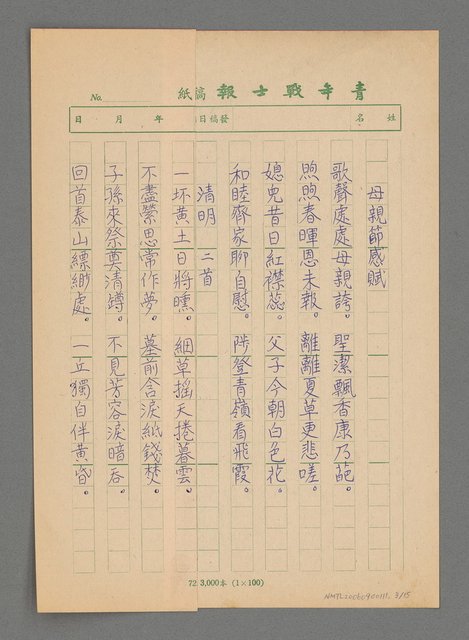 青年戰士報稿紙
No.
姓名 發稿日 年 月 日
母親節感賦
歌聲處處母親誇。聖潔飄香康乃葩。
煦煦春暉恩未報。離離夏草更悲嗟。
媳兒昔日紅襟蕊。父子今朝白色花。
和睦齊家聊自慰。陟登青嶺看飛霞。
清明 二首
一坏黃土日將曛。細草搖天捲暮雲。
不盡縈思常作夢。墓前含淚紙錢焚。
子孫來祭奠清罇。不見芳容淚暗吞。
回首泰山縹緲處。一丘獨自伴黃昏。
72 3,000本 (1×100)
NMTL20060900111 3/15